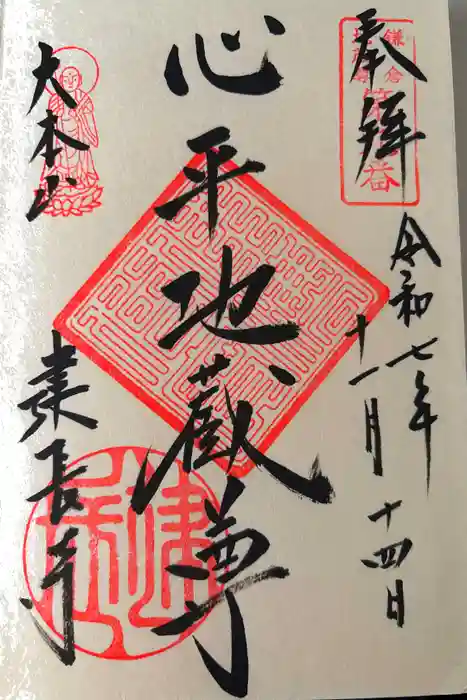 奉拝
鎌倉
番
令和七年
十一月十四日
心平地蔵尊
大本山
建長寺